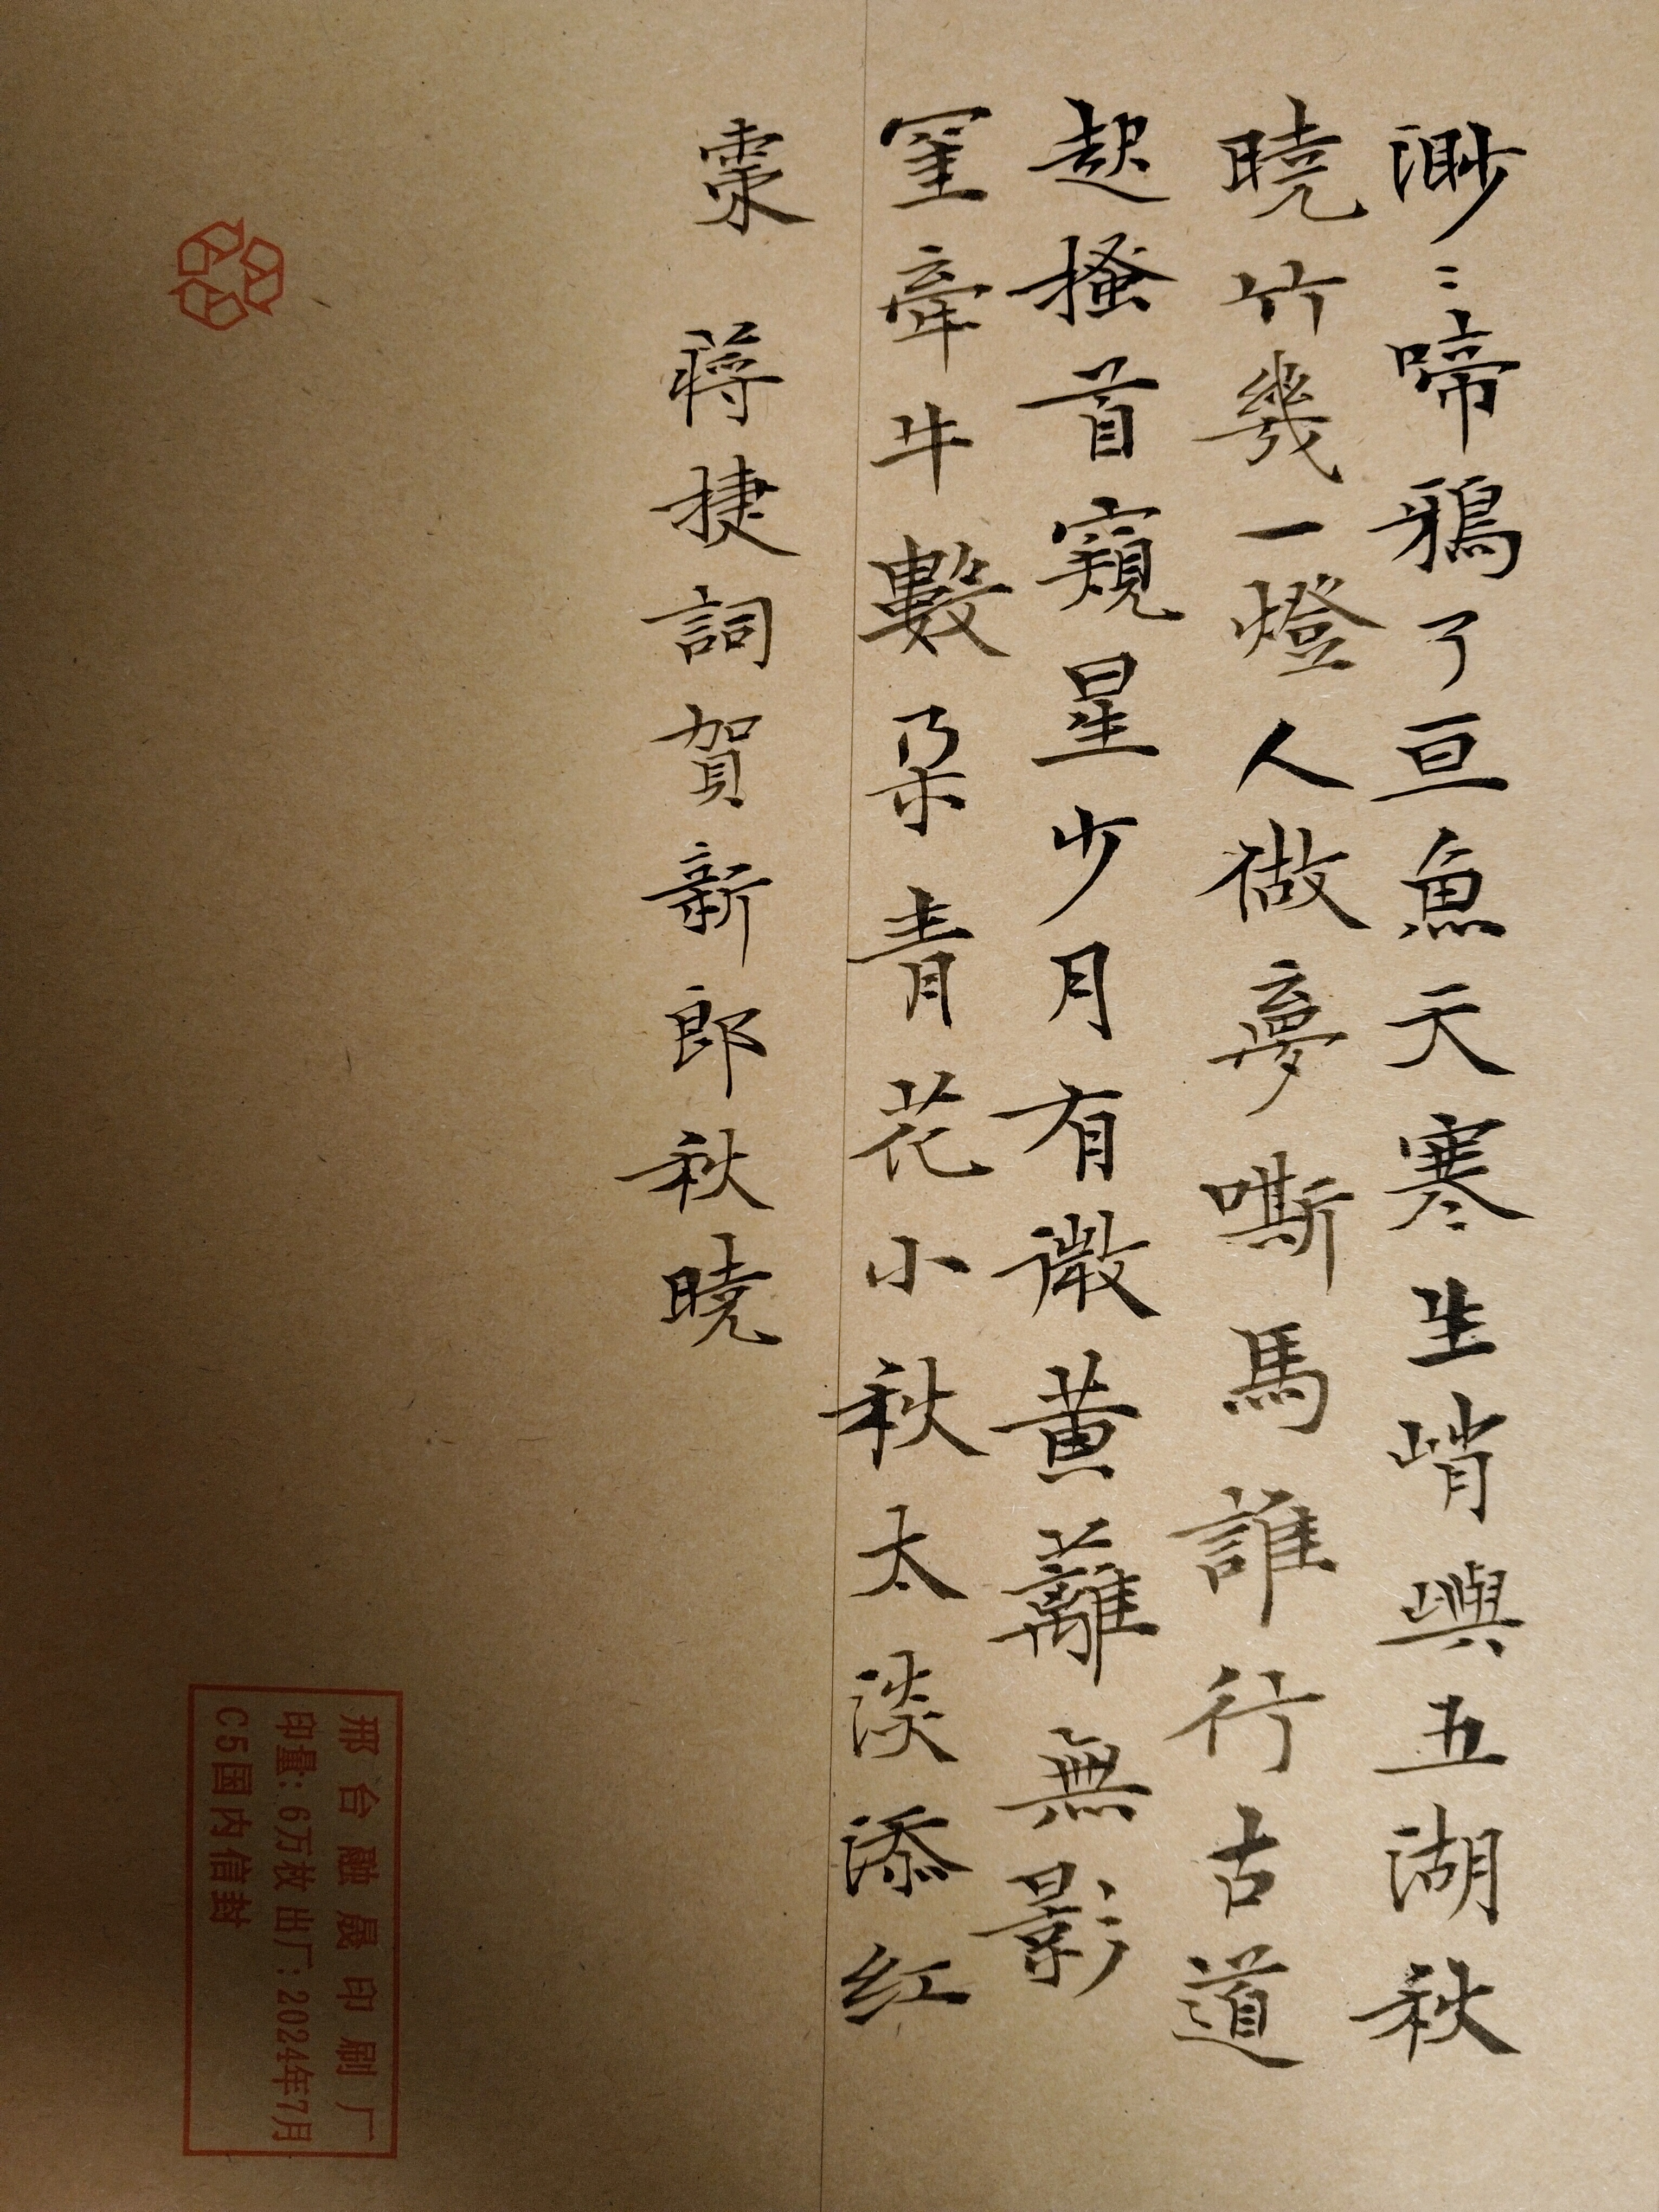 渺〻啼鴉了亘魚天寒生峭嶼五湖秋
曉竹幾一燈人做夢嘶馬誰行古道
起搔首窺星少月有微黄蘺無影
罣牽牛數朵青花小秋太淡添红
棗 蔣捷詞賀新郎秋曉
邢台融晟印刷厂
印量:6万枚 出厂:2024年7月
C5国内信封